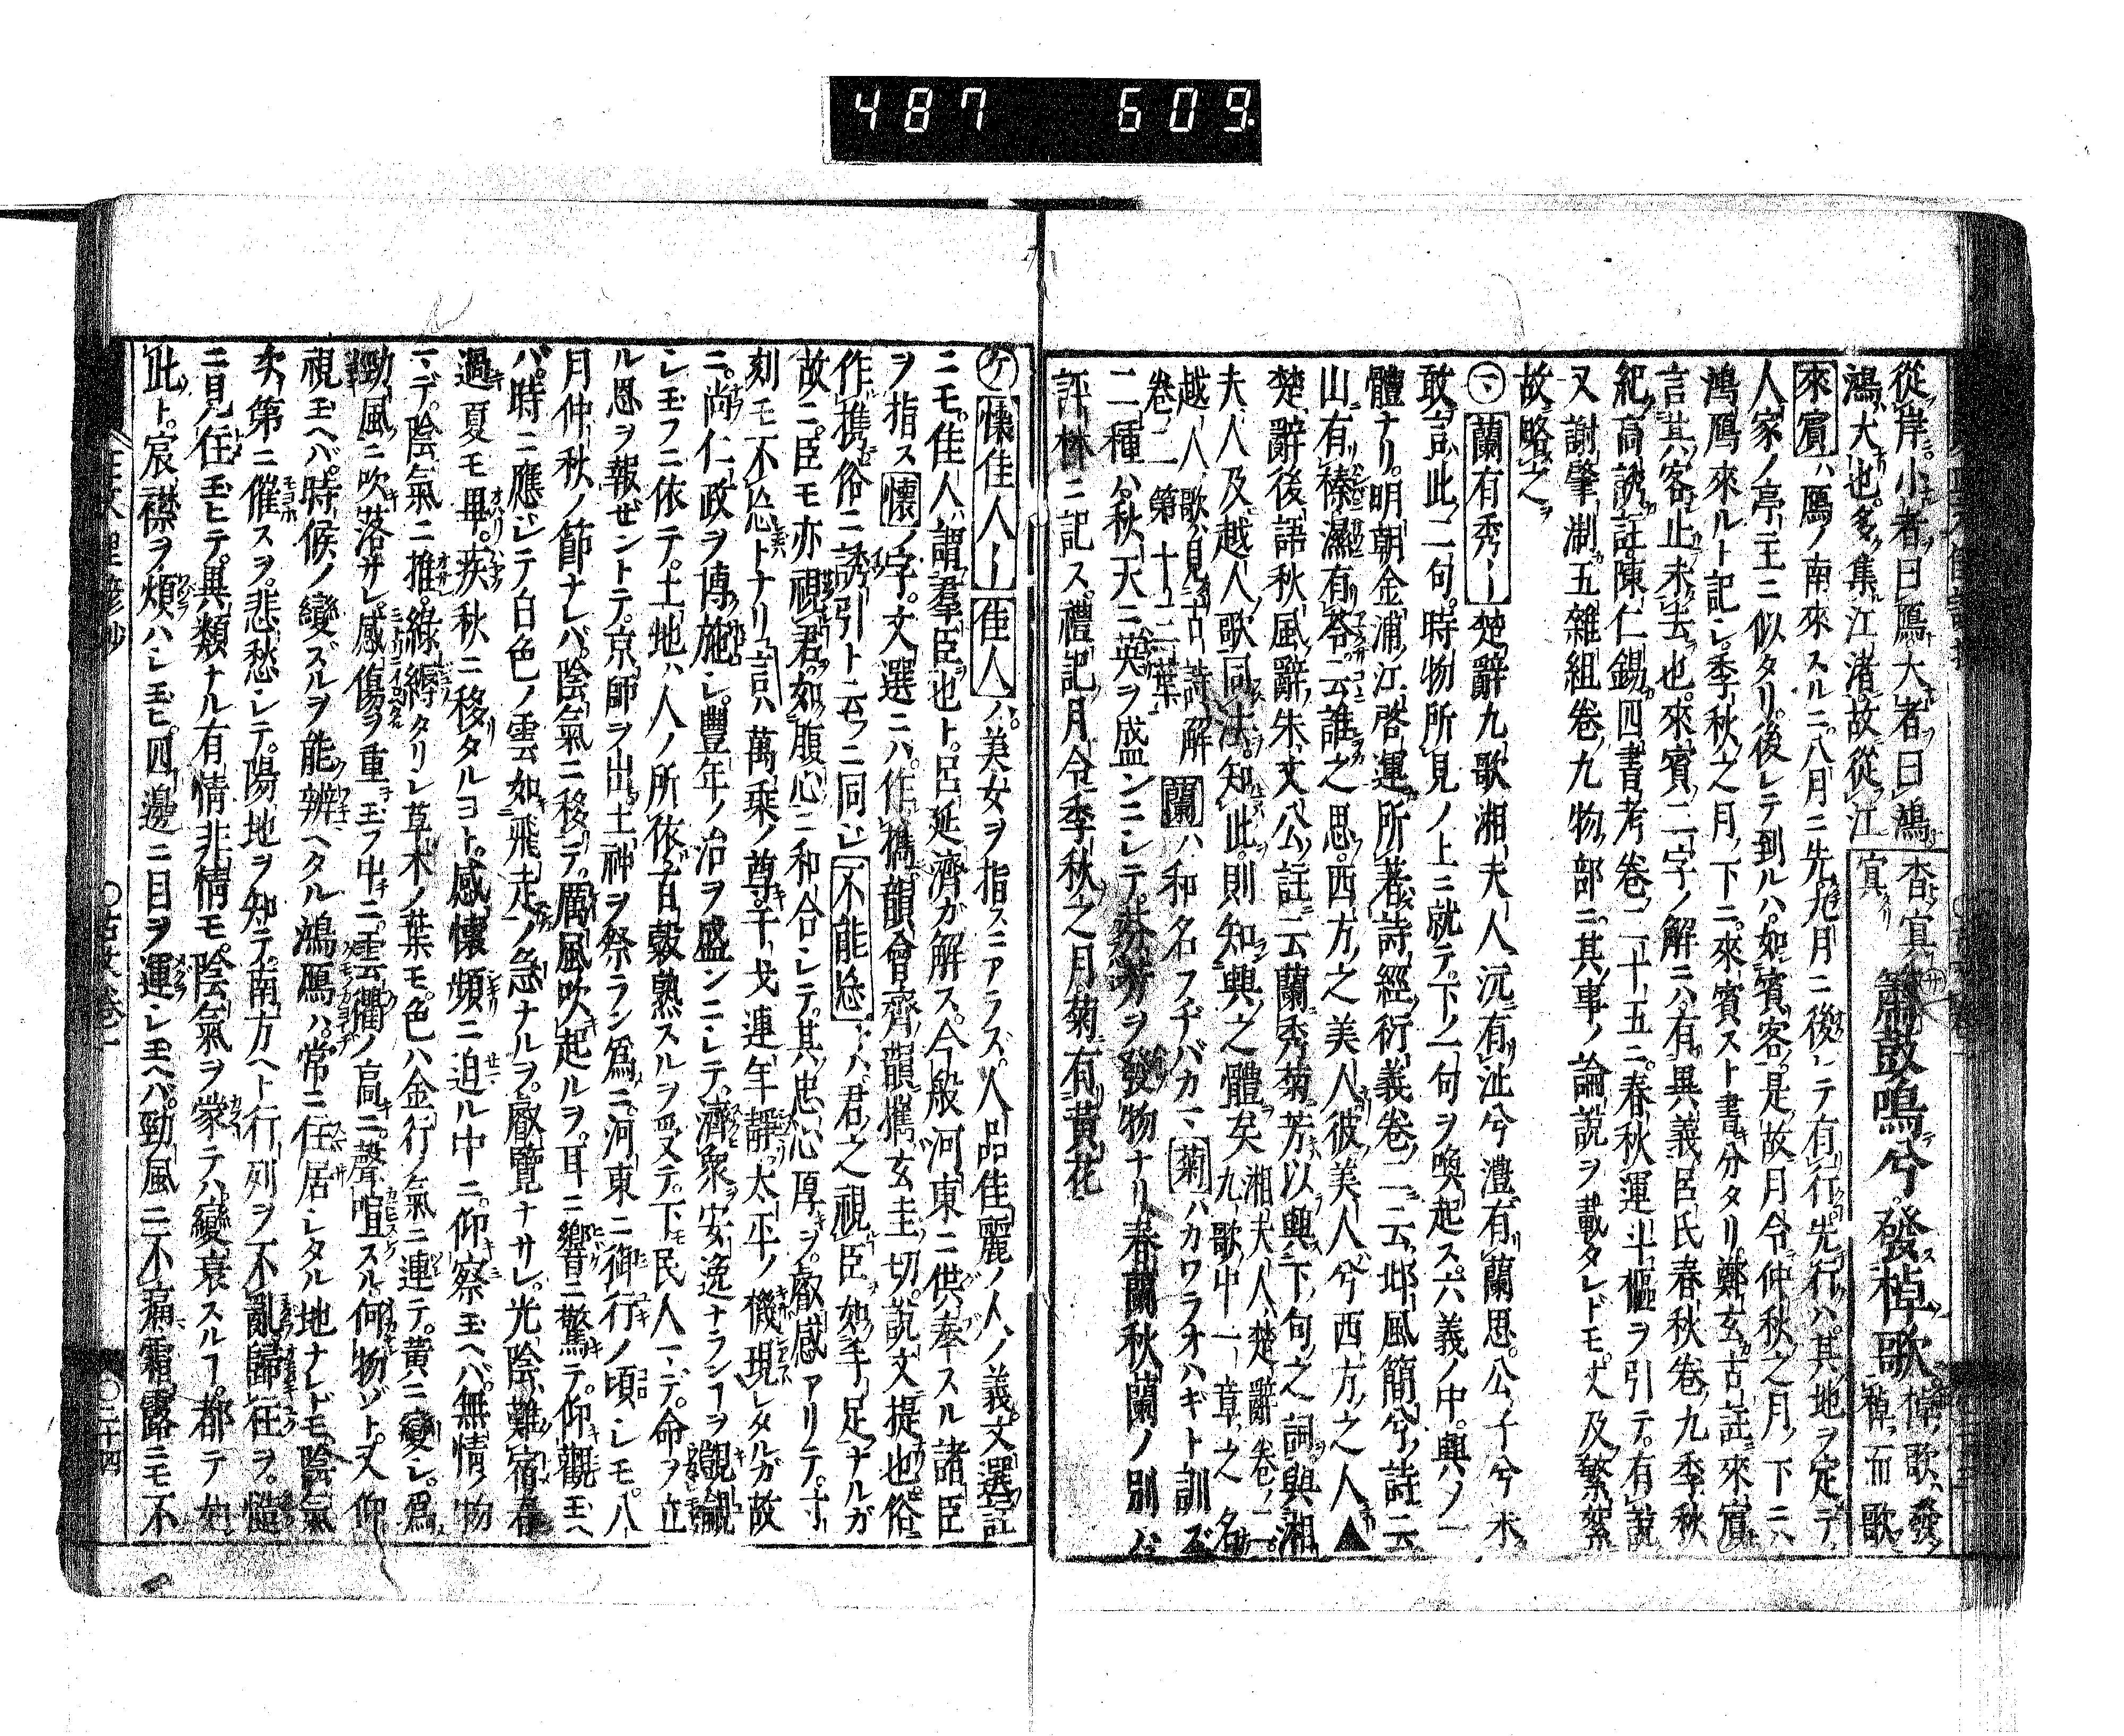 487 609.
從岸小者曰鴈大者曰鴻
鴻大也多集江渚故從江
杳寘
寘
簫鼓鳴兮發棹歌
棹歌發
棹而歌
來賓ハ鴈ノ南來スルニ八月ニ先九月ニ後レテ有行先行ハ其地ヲ定テ
人家ノ亭主ニ似タリ後レテ到ルハ如賓客是故月令仲秋之月ノ下ニハ
鴻鴈來ルト記シ季秋之月ノ下ニ來賓スト書キ分タリ鄭玄古註ニ來賓
言其客止未去也來賓二字ノ解ニハ有異義呂氏春秋卷九季秋
紀高誘註陳仁錫四書考卷二十五ニ春秋運斗樞ヲ引テ有說
又謝肇淛五雜組卷九物部ニ其事ノ論說ヲ載タレドモ丈及繁絮
故略之
㋮蘭有秀｜楚辭九歌湘夫人沅有沚兮澧有蘭思公子兮未
敢言此二句時物所見ノ上ニ就テ下ノ一句ヲ喚起ス六義ノ中興ノ一
體ナリ明朝金浦江啓運所著詩經衍義卷二云邶風簡兮詩云
山有榛濕有苓云誰之思西方之美人彼美人兮西方之人▲
楚辭後語秋風辭朱文公註云蘭秀菊芳以興下句之詞興湘
夫人及越人歌同法知此則知興之體矣
湘夫人楚辭卷ノ二
九歌中一章之名
越人歌見古詩解
卷二第十二葉
蘭ハ和名フヂバカマ菊ハカワラオハギト訓ズ
二種ハ秋天ニ英ヲ盛ンニシテ芬芳ヲ發物ナリ春蘭秋蘭ノ別ハ
評林ニ記ス禮記月令季秋之月菊有黃花
㋘懷佳人｜佳人ハ美女ヲ指スニアラズ人品佳麗ノ人ノ義文選註
ニモ佳人謂羣臣也ト呂延濟ガ解ス今般河東ニ供奉スル諸臣
ヲ指ス懷ノ字文選ニハ作攜韻會齊韻攜玄圭切說文提也俗
作携俗ニ誘引ト云フニ同ジ不能忘トハ君之視臣如手足ナルガ
故ニ臣モ亦視君如腹心ニ和合シテ其忠心厚キヲ叡感アリテ寸
刻モ不忘トナリ言ハ萬乘ノ尊干戈連年靜太平ノ機現レタルガ故
ニ尚仁政ヲ博施シ豐年ノ治ヲ盛ンニシテ濟衆安逸ナランヿヲ覬覦
シ玉フニ依テ土地ハ人ノ所依百穀熟スルヲ以テ下民人マデ命ヲ立
ル恩ヲ報ゼントテ京師ヲ出土神ヲ祭ラン爲ニ河東ニ御行ノ頃シモ八
月仲秋ノ節ナレバ陰氣ニ移テ厲風吹起ルヲ耳ニ響ニ驚テ仰觀玉ヘ
バ時ニ應ジテ白色ノ雲如飛走ノ急ナルヲ叡覽ナサレ光陰難宿春
過夏モ畢疾秋ニ移タルヨト感懷頻ニ迫ル中ニ仰察玉ヘバ無情ノ物
マデ陰氣ニ推綠縟タリシ草木ノ葉モ色ハ金行ノ氣ニ連テ黃ニ變シ爲
勁風ニ吹落サレ感傷ヲ重玉フ中ニ雲衢ノ高ニ聲喧スル何物ゾト又仰
視玉ヘバ時候ノ變ズルヲ能辨ヘタル鴻鴈ハ常ニ住居シタル地ナレドモ陰氣
次第ニ催スヲ悲愁シテ陽地ヲ知テ南方ヘト行列ヲ不亂歸往ヲ慥
ニ見住玉ヒテ異類ナル有情非情モ陰氣ヲ蒙テハ變衰スルヿ都テ如
此ト宸襟ヲ煩ハシ玉ヒ四邊ニ目ヲ運シ玉ヘバ勁風ニ不痛霜露ニモ不